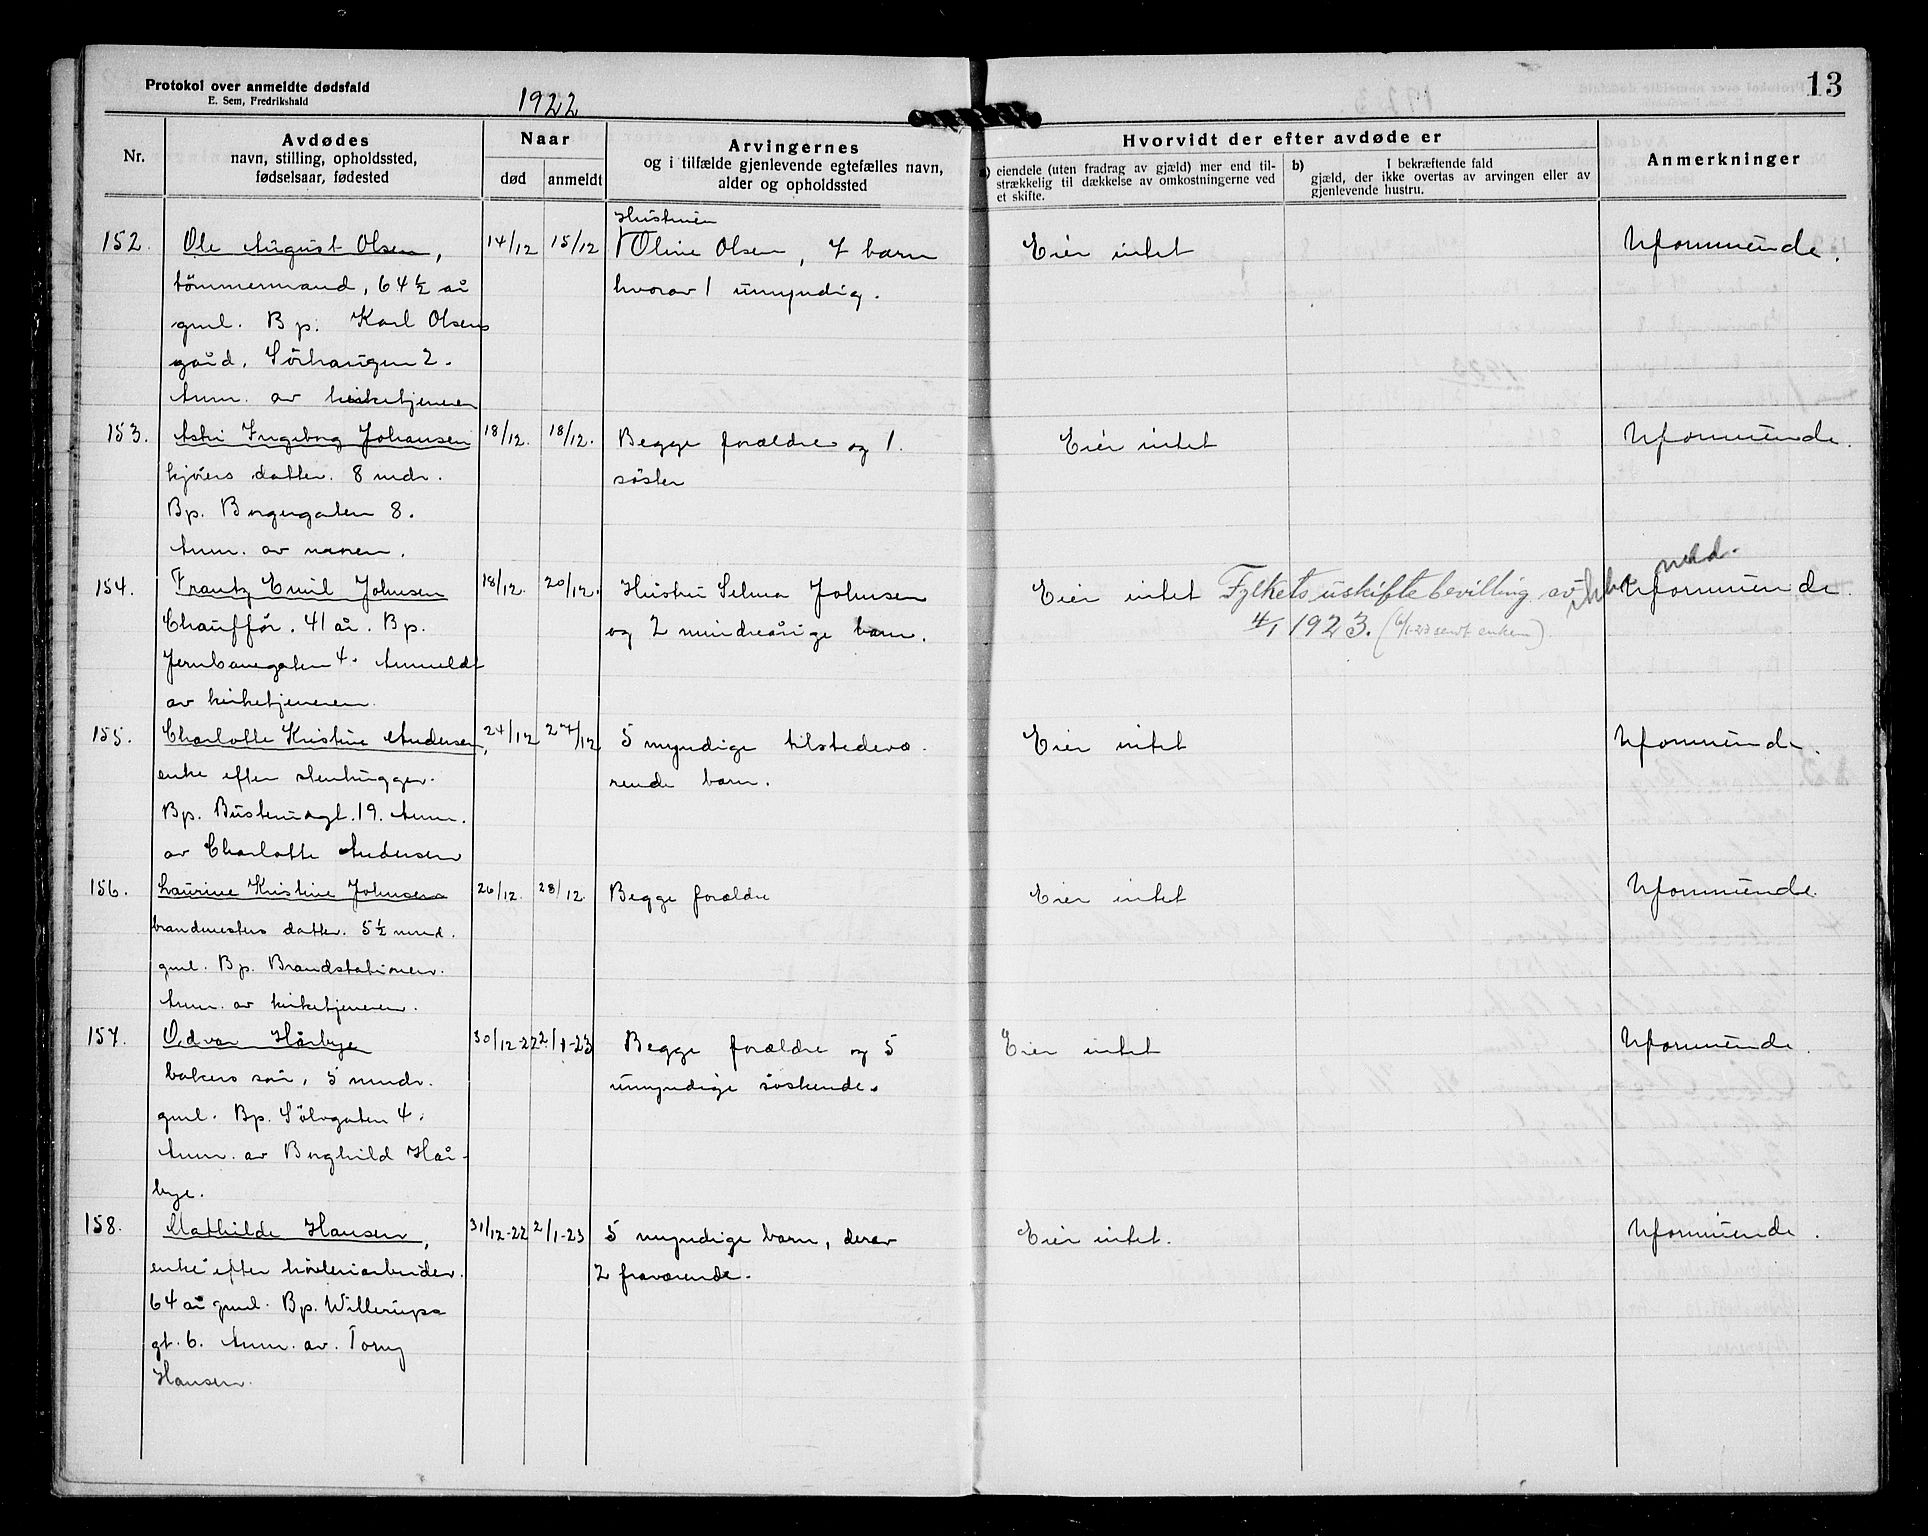 Protokol over anmeldte dødsfald
E. Sem, Fredrikshald
1922
13
Nr.
Avdødes
navn, stilling, opholdssted,
fødselsaar, fødested
Naar
død
anmeldt
Arvingernes
og i tilfælde gjenlevende egtefælles navn,
alder og opholdssted
Hvorvidt der efter avdøde er
a) eiendele (uten fradrag av gjæld) mer end til-
strækkelig til dækkelse av omkostningerne ved
et skifte.
b) I bekræftende fald
gjæld, der ikke overtas av arvingen eller av
gjenlevende hustru.
Anmerkninger
152.
Ole August Olsen,
tömmermand, 64½ år
gml. Bp. Karl Olsens
gård, Sörhaugen 2.
Anm. av kirketjeneren
14/12
15/12
Hustruen
Oline Olsen, 7 barn
hvorav 1 umyndig.
Eier intet
Uformuende.
153.
Astri Ingeborg Johansen
kjörers datter. 8 mdr.
Bp. Borgergaten 8.
Anm. av
18/12.
18/12.
Begge forældre og 1.
söster
Eier intet
Uformuende.
154.
Frantz Emil Johnsen
Chauffør. 41 år. Bp.
Jernbanegaten 4. Anmeldt
av kirketjeneren.
18/12.
20/12.
Hustru Selma Johnsen
og 2 mindreårige barn.
Eier intet
Fylkets uskiftebevilling av
4/1 1923. (6/1-23 sendt enken).
Uformuende.
155.
Charlotte Kristine Andersen,
enke efter stenhugger.
Bp. Busterudgt. 19. Anm.
av Charlotte Andersen
24/12
27/12
5 myndige tilstedevæ-
rende barn.
Eier intet
Uformuende.
156.
Laurine Kristine Johnsen
brandmesters datter. 5½ mnd.
gml. Bp. Brandstationen.
Anm. av kirketjeneren.
26/12.
28/12.
Begge forældre
Eier intet
Uformuende.
157.
Odvar Hårbye
bakers sön, 5 mndr.
gml. Bp. Sölvgaten 4.
Anm. av Borghild Hår-
bye.
30/12-22
2/1-23
Begge forældre og 5
umyndige söskende.
Eier intet
Uformuende.
158.
Mathilde Hansen,
enke efter hövleriarbeider.
64 år gml. Bp. Willerups
gt. 6. Anm. av
Hansen.
31/12-22
2/1-23
5 myndige barn, derav
2 fraværende.
Eier intet.
Uformuende.